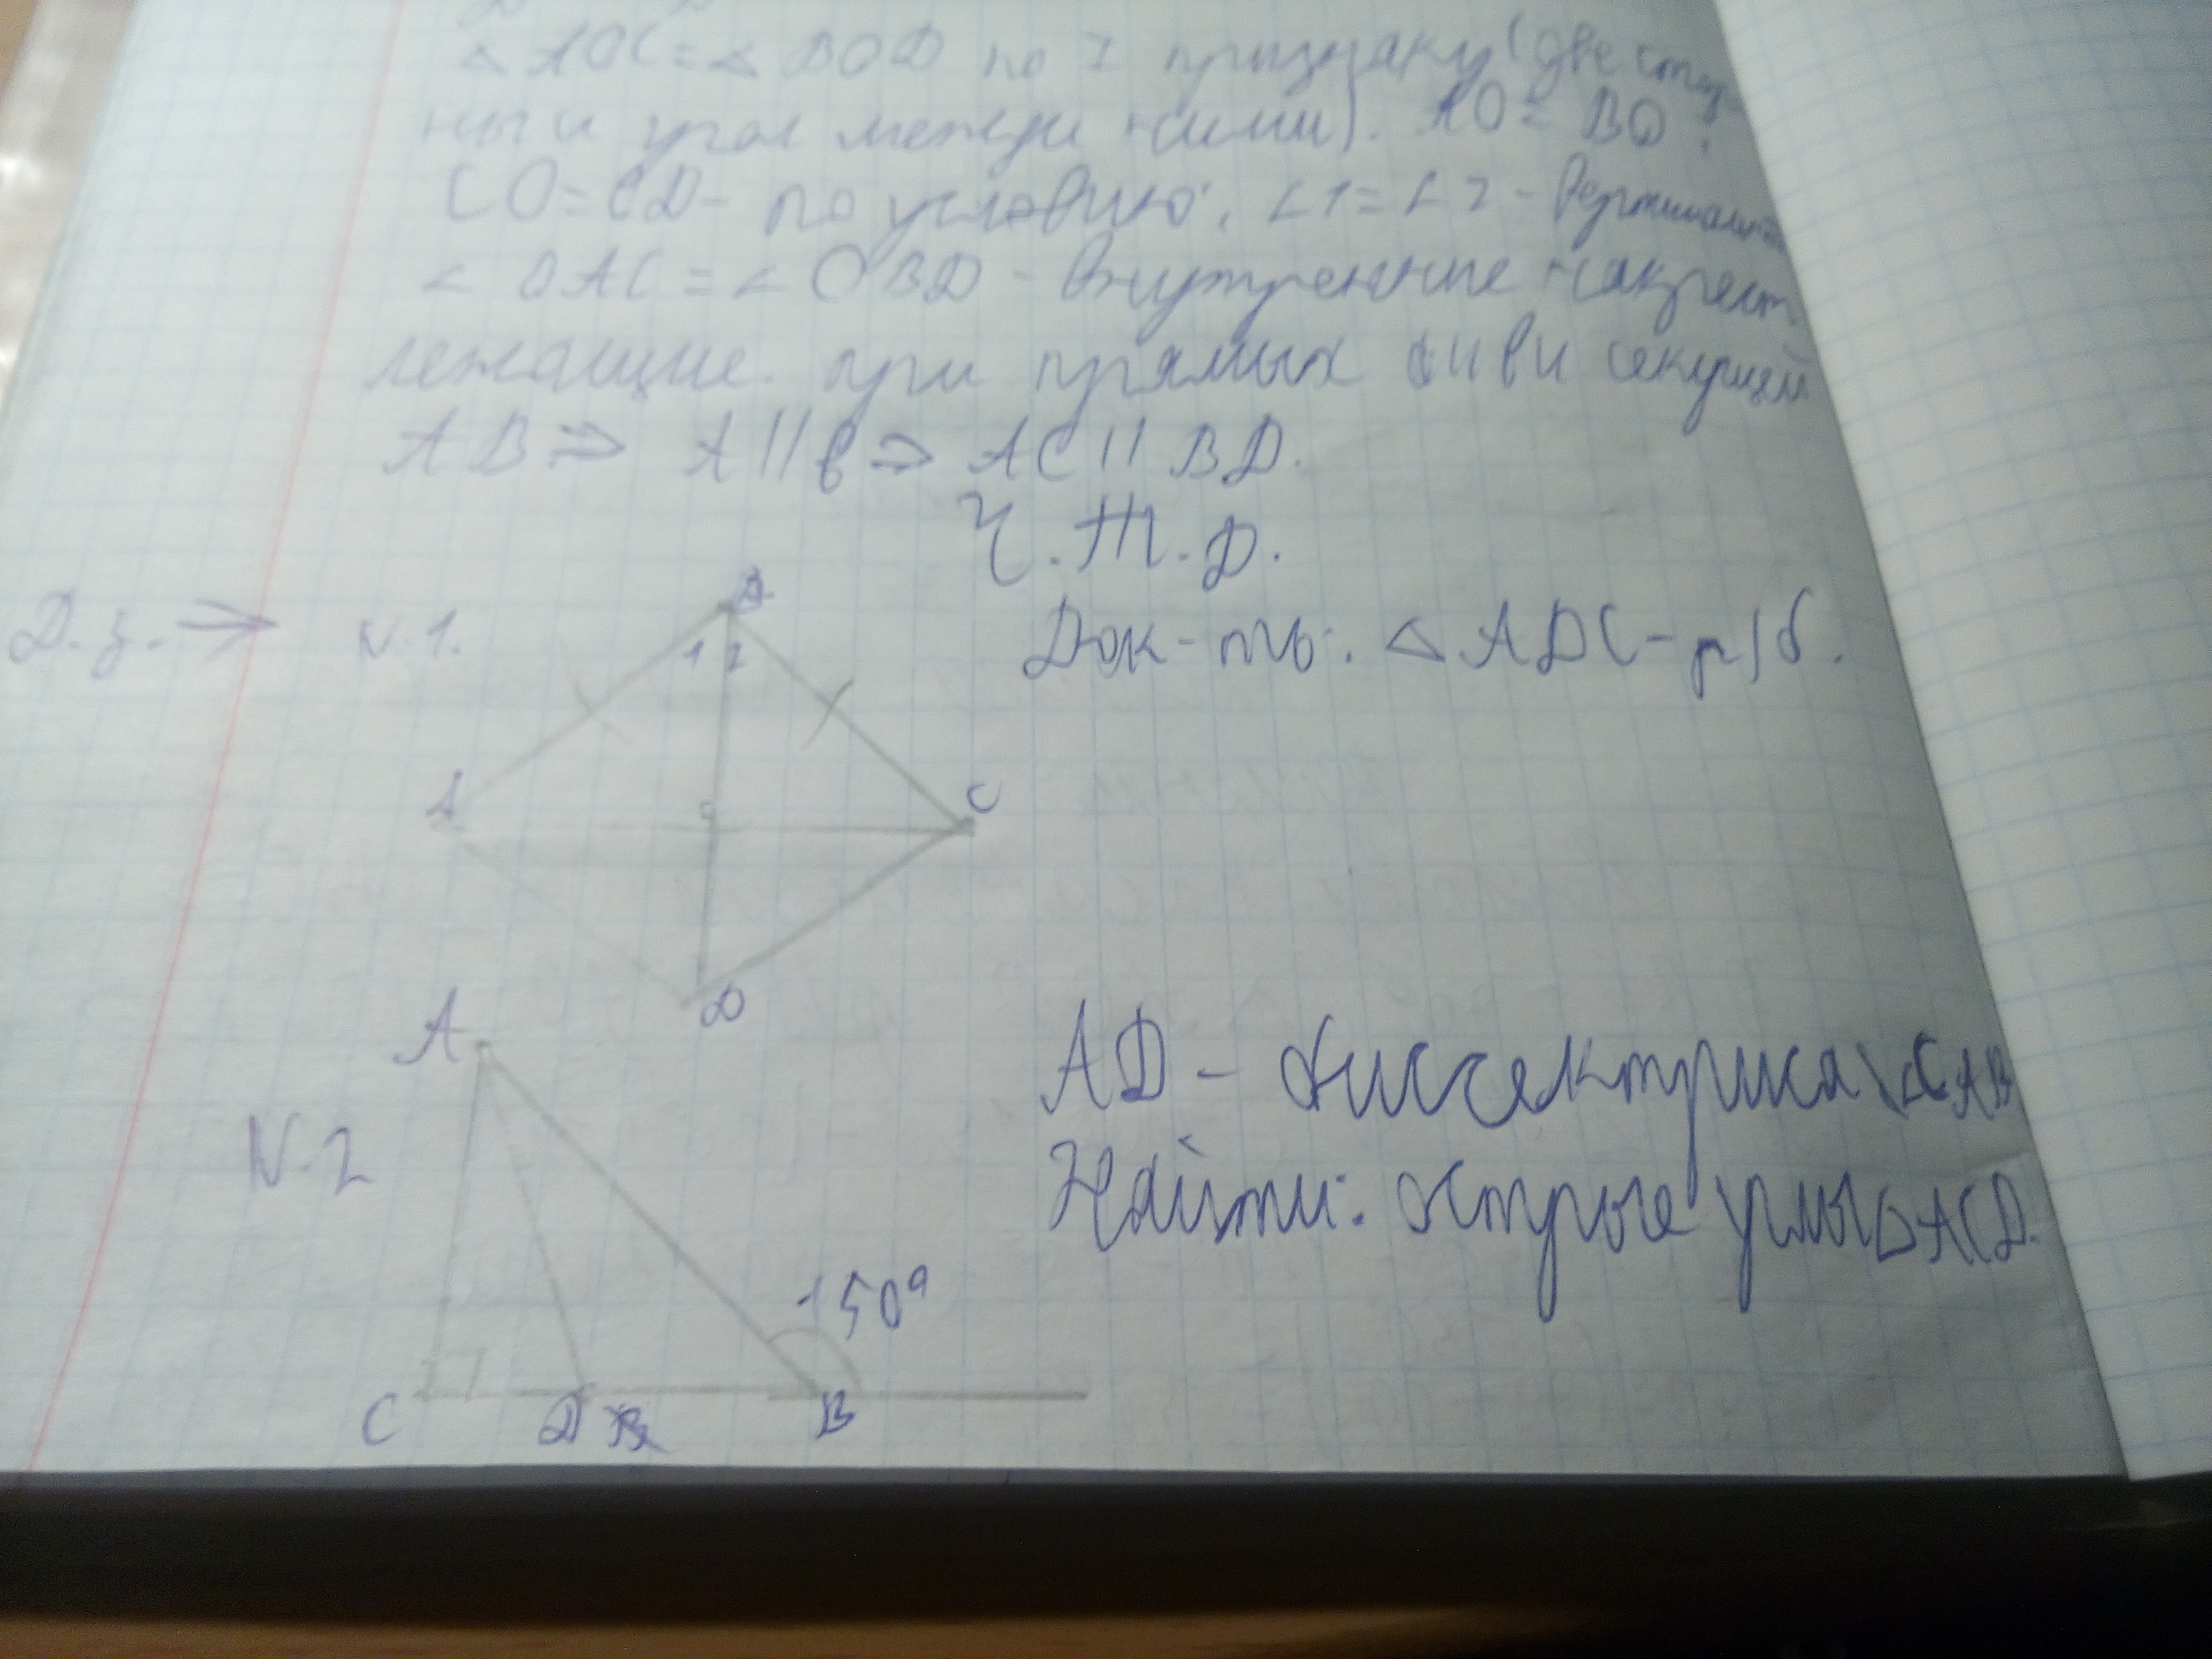 △ AOC = △ BOD по I признаку (две сторо
ны и угол между ними). AO = BO;
CO = OD - по условию; ∠1 = ∠2 -
∠ OAC = ∠ OBD - внутренние накрест
лежащие при прямых а и в и секущей
AB ⇒ а || в ⇒ AC || BD.
Ч.Т.Д.
Д.з. → N.1. Док-ть: △ ADC - р/б.
B
1 2
A C
D
N.2
A
AD - биссектриса ∠CAB
Найти: острые углы △ACD.
150°
C D B